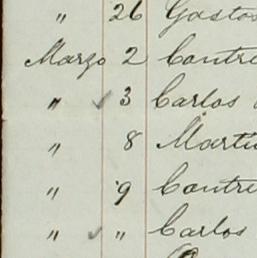 " 26 Gastos
Marzo 2 Contre
" ✓ 3 Carlos
" 8 Martin
" 9 Contre
" ✓ " Carlos